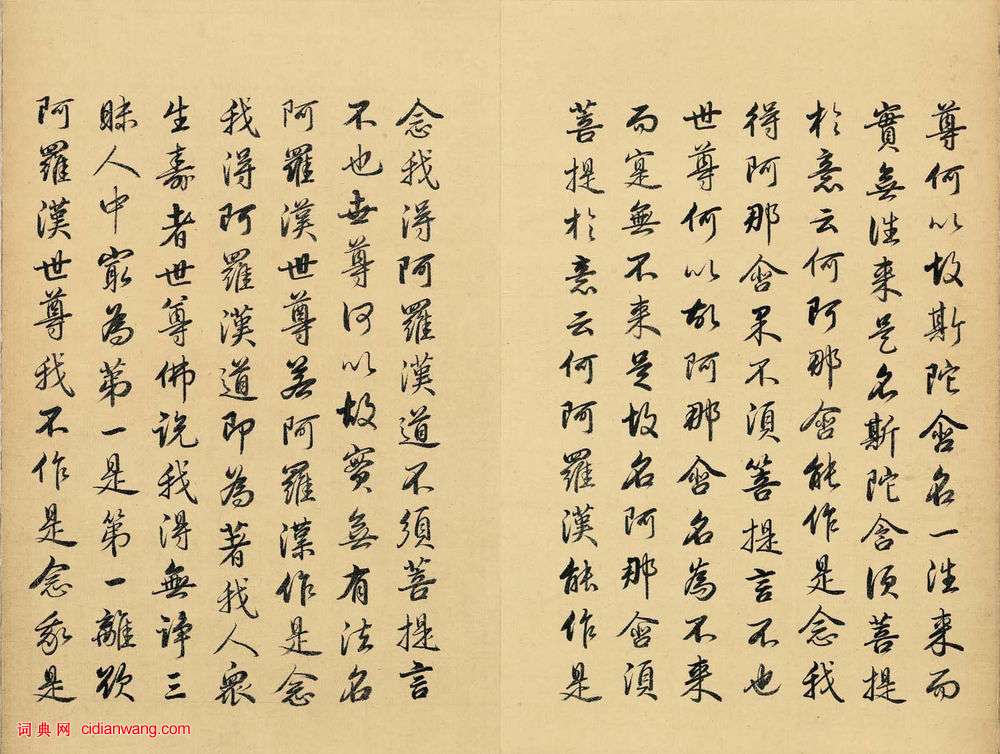 尊何以故斯陀含名一往来而
實無往来是名斯陀含須菩提
於意云何阿那含能作是念我
得阿那含果不須菩提言不也
世尊何以故阿那含名為不来
而寔無不来是故名阿那含須
菩提於意云何阿羅漢能作是
念我得阿羅漢道不須菩提言
不也世尊何以故實無有法名
阿羅漢世尊若阿羅漢作是念
我得阿羅漢道即為著我人眾
生壽者世尊佛說我得無諍三
昧人中冣為第一是第一離欲
阿羅漢世尊我不作是念我是
词典网 cidianwang.com